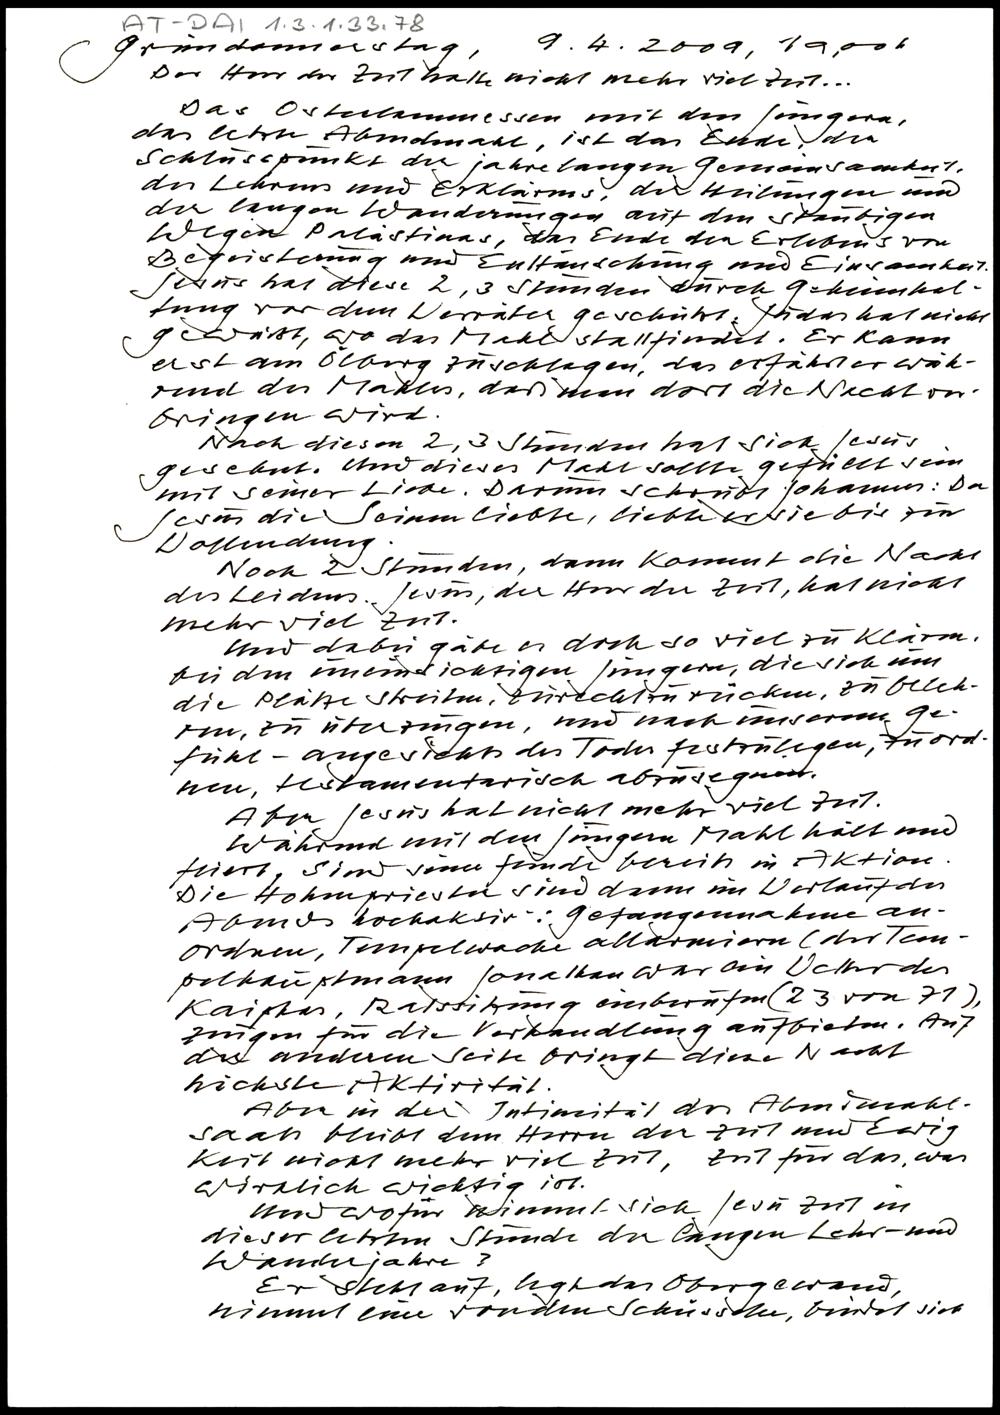 AT-DAI 1.3.1.33.78
Gründonnerstag, 9.4.2009, 19,00h
Der Herr der Zeit hatte nicht mehr viel Zeit...
Das Osterlammessen mit den Jüngern,
das letzte Abendmahl, ist das Ende, der
Schlusspunkt der jahrelangen Gemeinsamkeit.
des Lehrens und Erklärens, der Heilungen und
der langen Wanderungen auf den staubigen
Wegen Palästinas, das Ende der Erlebnis von
Begeisterung und Enttäuschung und Einsamkeit.
Jesus hat diese 2, 3 Stunden durch Geheimhal-
tung vor dem Verräter geschützt. Judas hat nicht
gewußt, wo das Mahl stattfindet. Er kann
erst am Ölberg zuschlagen, das erfährt er wäh-
rend des Mahles, daß man dort die Nacht ver-
bringen wird.
Nach diesen 2, 3 Stunden hat sich Jesus
gesehnt. Und dieses Mahl sollte gefüllt sein
mit seiner Liebe. Darum schreibt Johannes: Da
Jesus die Seinen liebte, liebte er sie bis zur
Vollendung.
Noch 2 Stunden, dann kommt die Nacht
des Leidens. Jesus, der Herr der Zeit, hat nicht
mehr viel Zeit.
Und dabei gäbe es doch so viel zu klären.
bei den uneinsichtigen Jüngern, die sich um
die Plätze streiten, zurechtzurücken, zu beleh-
ren, zu überzeugen, und nach unserem Ge-
fühl - angesichts des Todes festzulegen, zu ord-
nen, testamentarisch abzusegnen.
Aber Jesus hat nicht mehr viel Zeit.
Während mit den Jüngern Mahl hält und
feiert, sind seine Feinde bereits in Aktion.
Die Hohenpriester sind dann im Verlauf des
Abends hochaktiv: Gefangennahme an-
ordnen, Tempelwache allarmieren (der Tem-
pelhauptmann Jonathan war ein Vetter des
Kaiphas, Ratssitzung einberufen (23 von 71),
Zeugen für die Verhandlung aufbieten. Auf
der anderen Seite bringt diese Nacht
höchste Aktivität.
Aber in der Intimität des Abendmahl-
saals bleibt dem Herrn der Zeit und Ewig
keit nicht mehr viel Zeit, Zeit für das, was
wirklich wichtig ist.
Und wofür nimmt sich Jesus Zeit in
dieser letzten Stunde der langen Lehr- und
Wanderjahre?
Er steht auf, legt das Obergewand,
nimmt eine von den Schüsseln, bindet sich